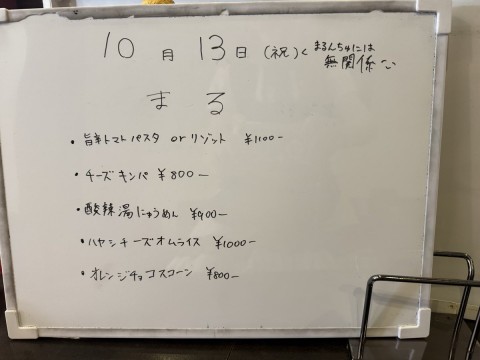 10月13日(祝)< まるんちゅには
無関係〜
まる
・旨辛トマトパスタ orリゾット ¥1100-
・チーズキンパ ¥800-
・酸辣湯にゅうめん ¥900-
・ハヤシチーズオムライス ¥1000-
・オレンジチョコスコーン ¥800-